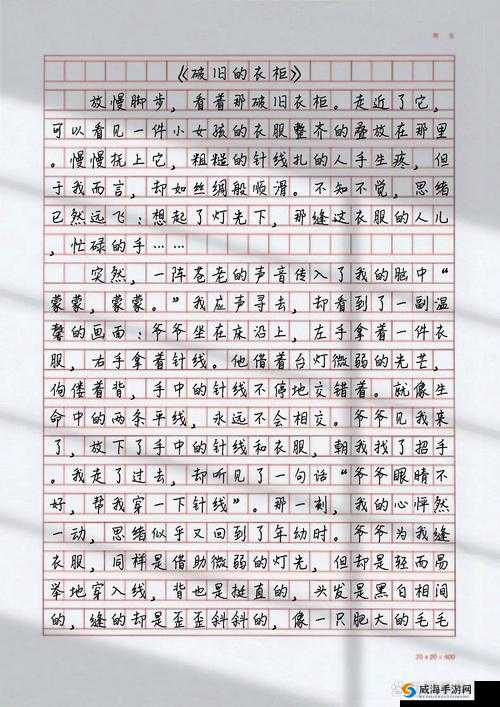 《破旧的衣柜》
放慢脚步，看着那破旧衣柜。走近了它，
可以看见一件小女孩的衣服整齐的叠放在那里
。慢慢托上它，粗糙的针线扎的人手生疼，但
于我而言，却如丝绸般顺滑。不知不觉，思绪
已然远飞：想起了灯光下，那缝过衣服的人儿
，忙碌的手……
突然，一阵苍老的声音传入了我的脑中“
蒙蒙，蒙蒙。”我应声寻去，却看到了一副温
馨的画面：爷爷坐在床沿上，左手拿着一件衣
服，右手拿着针线。他借着台灯微弱的光芒，
佝偻着背，手中的针线不停地交错着。就像生
命中的两条平线，永远不会相交。爷爷见我来
了，放下了手中的针线和衣服，朝我找了招手
。我走了过去，却听见了一句话“爷爷眼睛不
好，帮我穿一下针线”。那一刻，我的心怦然
一动，思绪似乎又回到了年幼时。爷爷为我缝
衣服，同样是借助微弱的灯光，但却是轻而易
举地穿入线，背也是挺直的，头发是黑白相间
的，缝的却是歪歪斜斜的，像一只肥大的毛毛
20×20=400
威海手游网